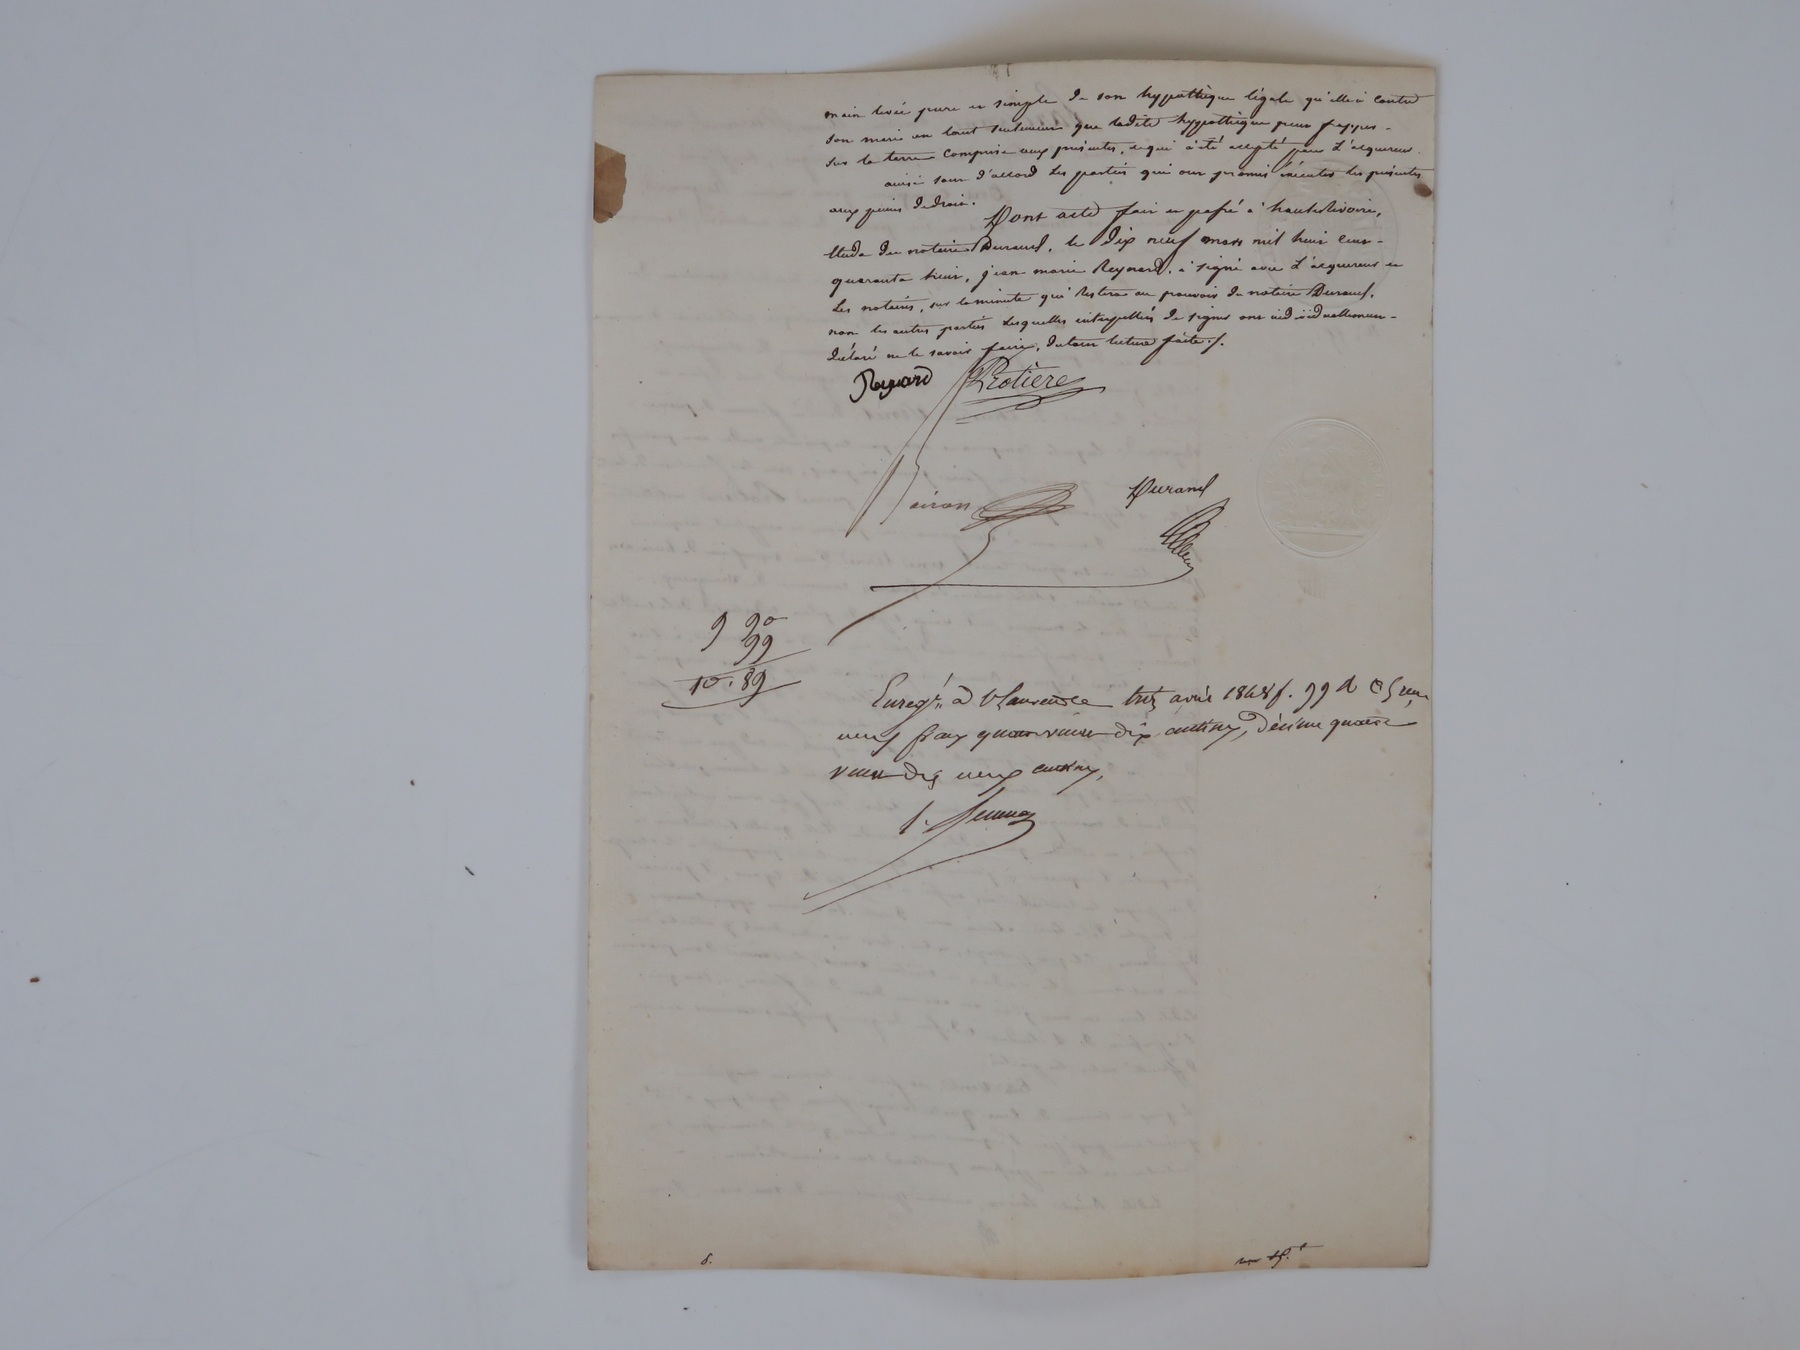 main levée pure et simple de son hypothèque légale qu'elle à contre
son mari en tant seulement que ladite hypothèque peux frapper -
sur la terre comprise aux présentes, ce qui à été accepté par l'acquéreur.
ainsi sont d'accord les parties qui ont promis éxécuter les présentes
aux peines de droit.
Dont acte fait et passé à hauterivoire,
étude du notaire Durand, le dix neuf mars mil huit cent -
quarante huit, jean marie Reynard, à signé avec l'acquéreur et
les notaires, sur la minute qui restera au pouvoir du notaire Durand,
non les autres parties lesquelles interpellées de signer ont individuellement -
déclaré ne le savoir faire, du tout lecture faite ./.
Reynard Protière
Durand
9 90
99
10. 89
Enregr. à St Laurent le trois avril 1848 f. 99
neuf francs quatre vingt dix centimes, décime quatre
vingt dix neuf centimes,